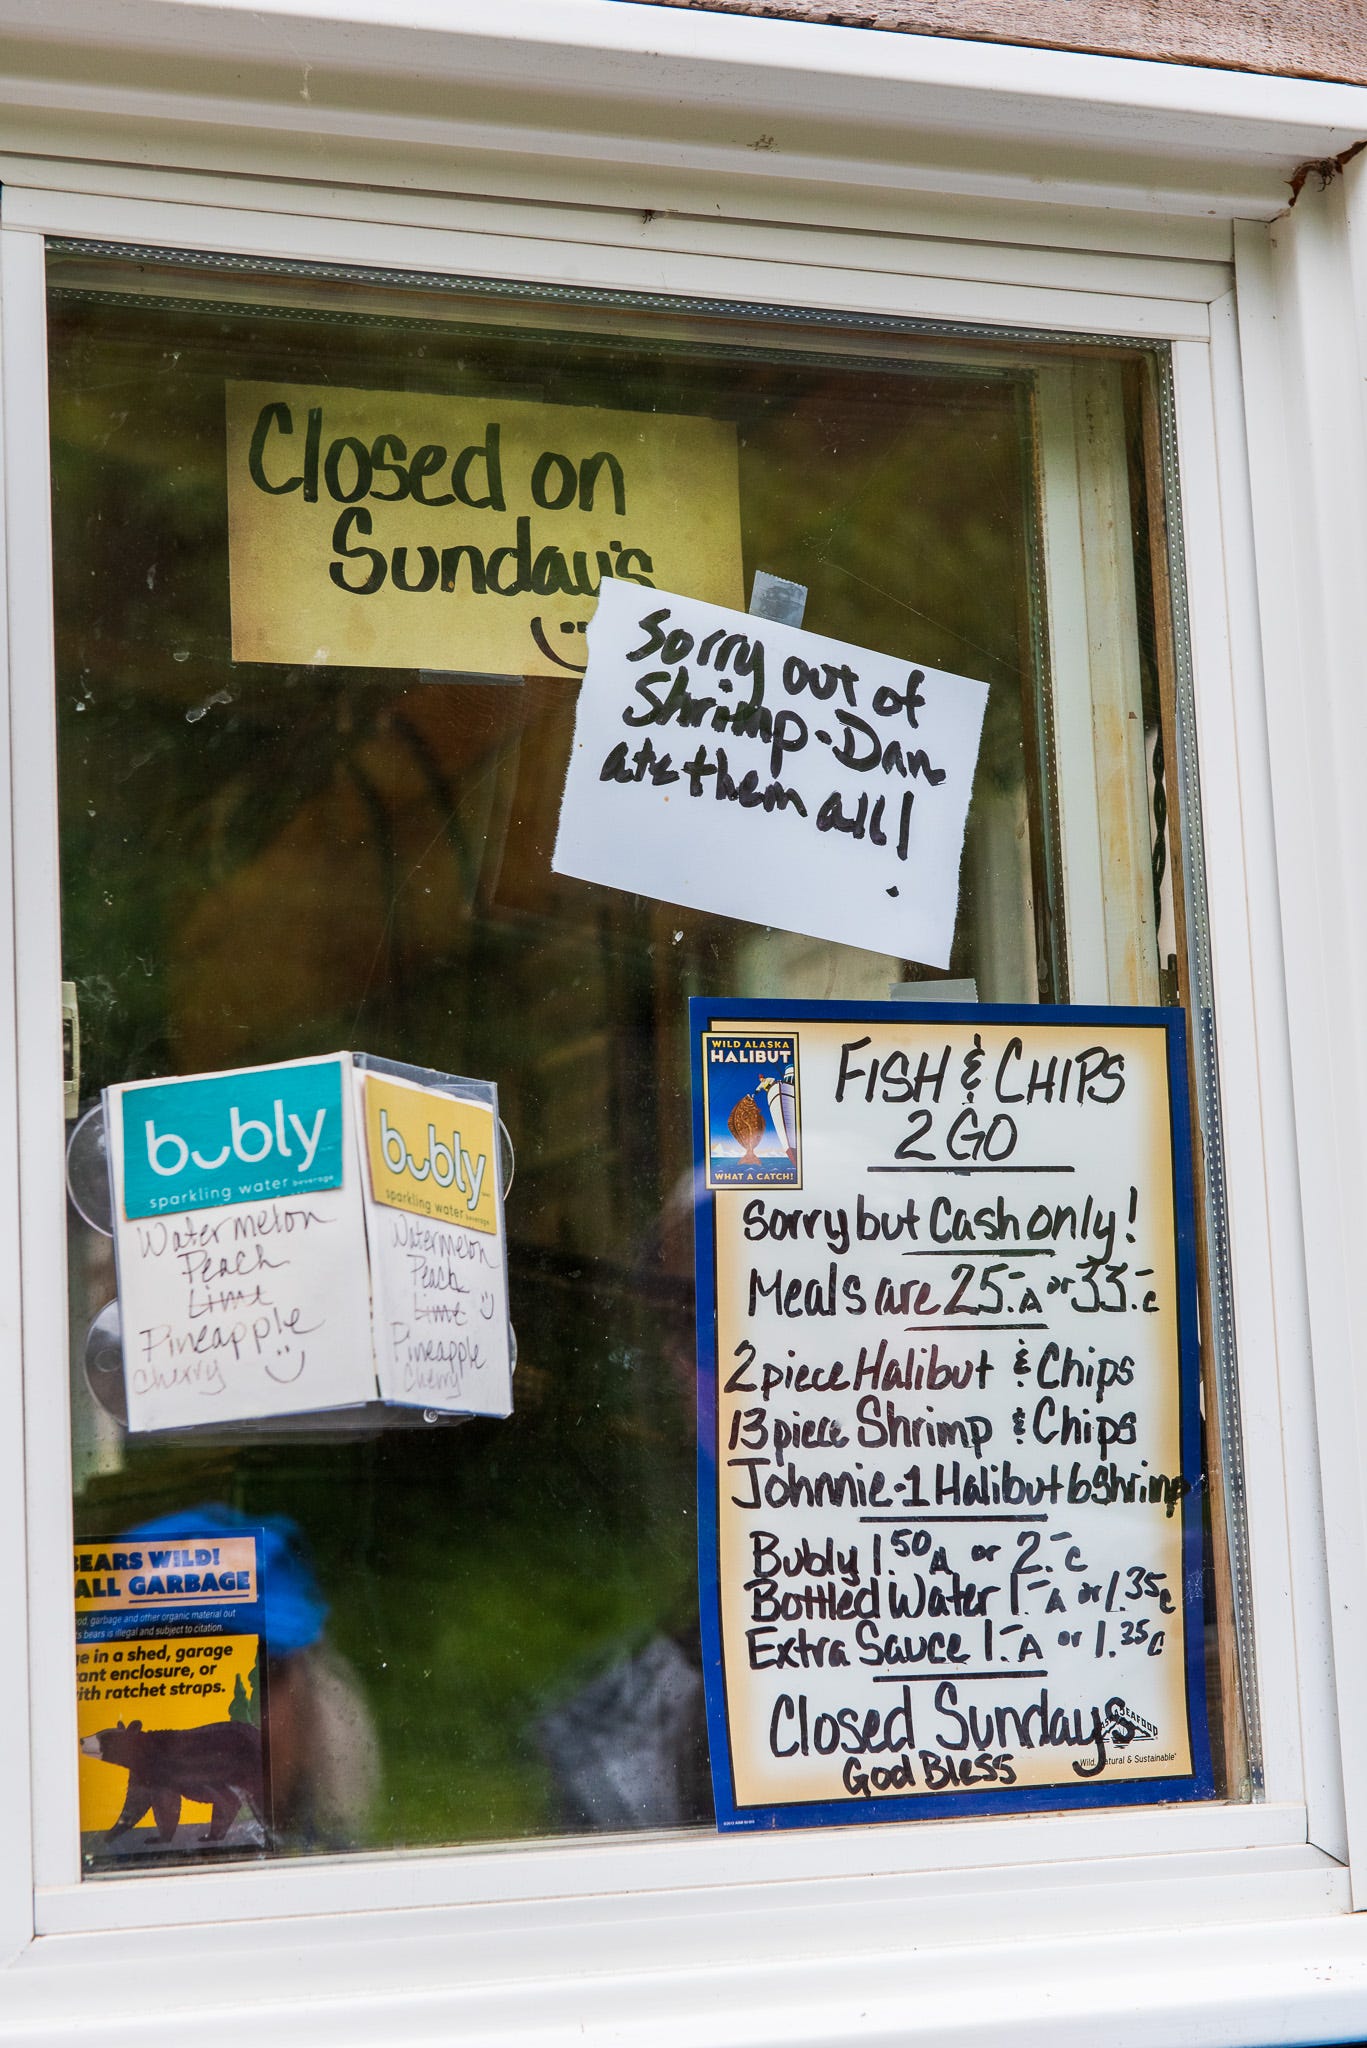 Closed on
Sunday's
Sorry out of
Shrimp-Dan
ate them all!
bubly
sparkling water beverage
Watermelon
Peach
Lime
Pineapple
Cherry
bubly
sparkling water beverage
Watermelon
Peach
Lime
Pineapple
Cherry
WILD ALASKA
HALIBUT
WHAT A CATCH!
FISH & CHIPS
2 GO
Sorry but Cash only!
Meals are 25.-A or 33.-C
2 piece Halibut & Chips
13 piece Shrimp & Chips
Johnnie-1 Halibut 6 Shrimp
Bubly 1.50 A or 2.-C
Bottled Water 1.-A or 1.35 C
Extra Sauce 1.-A or 1.35 C
Closed Sundays
God Bless
Wild, Natural & Sustainable
EARS WILD!
ALL GARBAGE
od, garbage and other organic material out
s bears is illegal and subject to citation.
e in a shed, garage
ant enclosure, or
ith ratchet straps.